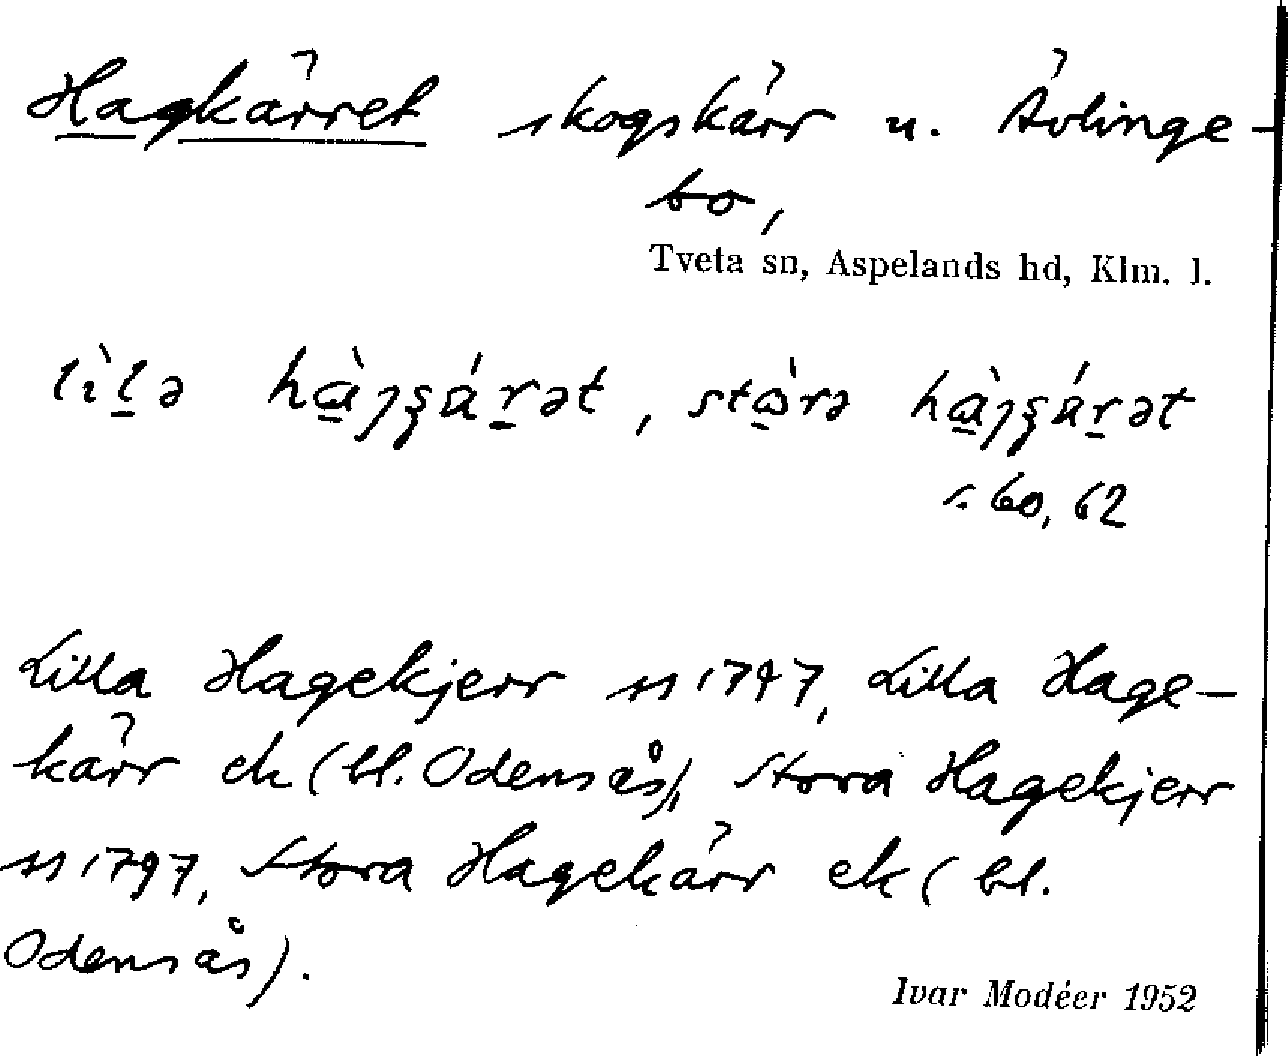 Hagkärret skogskärr u. Ävlinge-
bo,
Tveta sn, Aspelands hd, Klm. l.
lìlə hàjʒárət, stòrə hàjʒárət
s. 60, 62
Lilla Hagekjerr 1797, Lilla Hage-
kärr ek (bl. Odensås), Stora Hagekjerr
1797, Stora Hagekärr ek (bl.
Odensås).
Ivar Modéer 1952